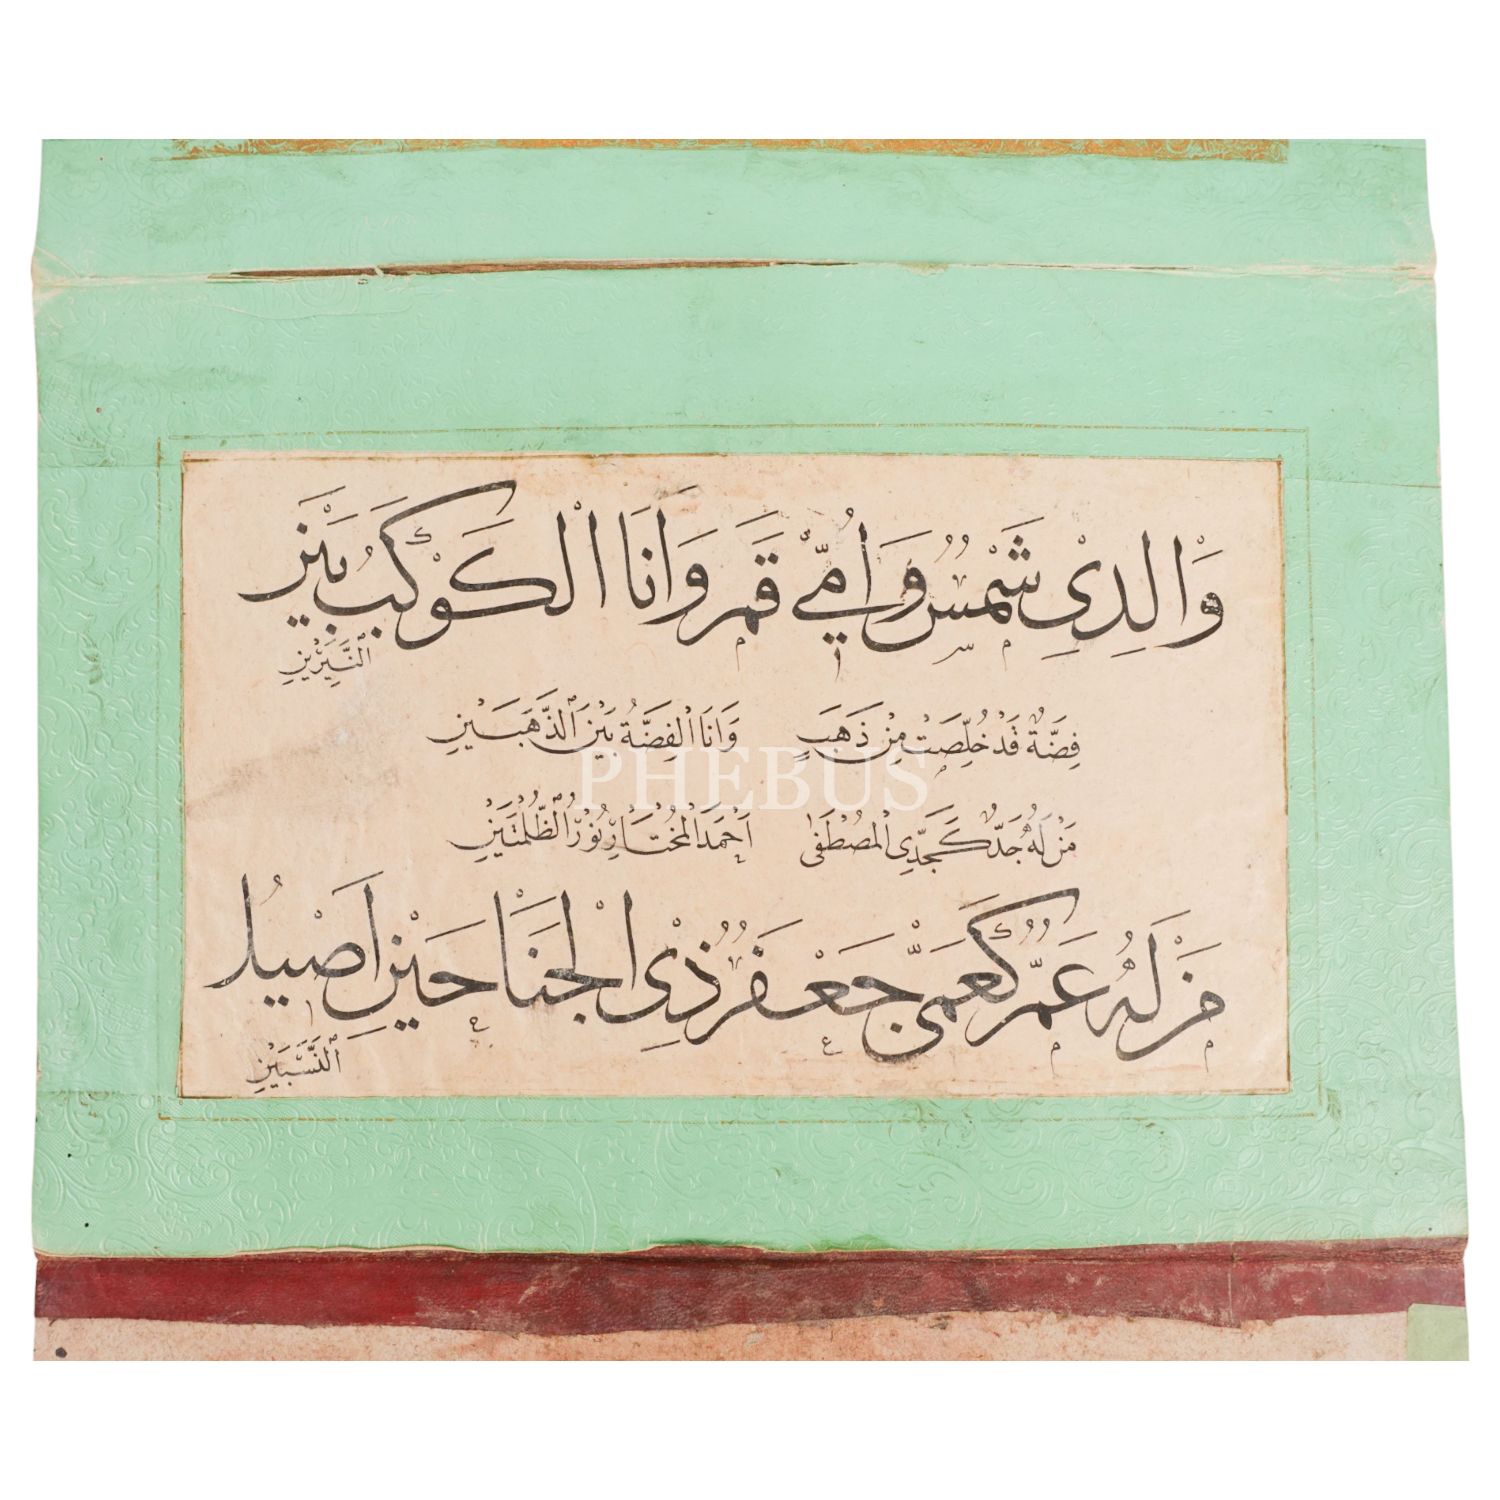 وَالِدِيْ شَمْسٌ وَاُمِّيْ قَمَرٌ وَاَنَا الْكَوْكَبُ بَيْنَ
النَّيِّرَيْنِ
فِضَّةٌ قَدْ خُلِّصَتْ مِنْ ذَهَبٍ وَاَنَا الْفِضَّةُ بَيْنَ الذَّهَبَيْنِ
مَنْ لَهُ جَدٌّ كَجَدِّي الْمُصْطَفٰى اَحْمَدَ الْمُخْتَارِ نُوْرُ الظُّلْمَتَيْنِ
مَنْ لَهُ عَمٌّ كَعَمِّيْ جَعْفَرٌ ذِي الْجَنَاحَيْنِ اَصْيَلُ
النَّسَبَيْنِ
PHEBUS